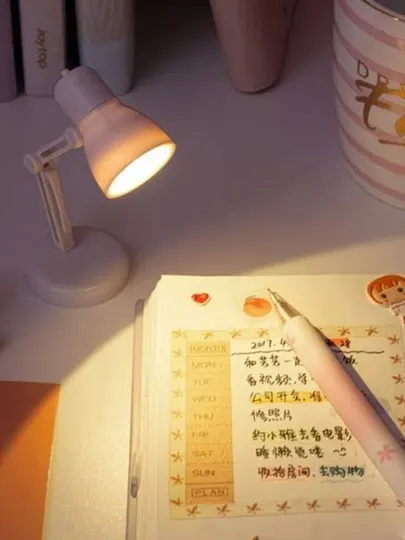 Joytop
DR
MONTH 2017.4 28
MON 和芳芳一 饭
TUE 看视频,学
WED 公司开会,准
THU 修照片
FRI 约小雅去看电影
SAT 睡懒觉喽
SUN 收拾房间,去购物
PLAN